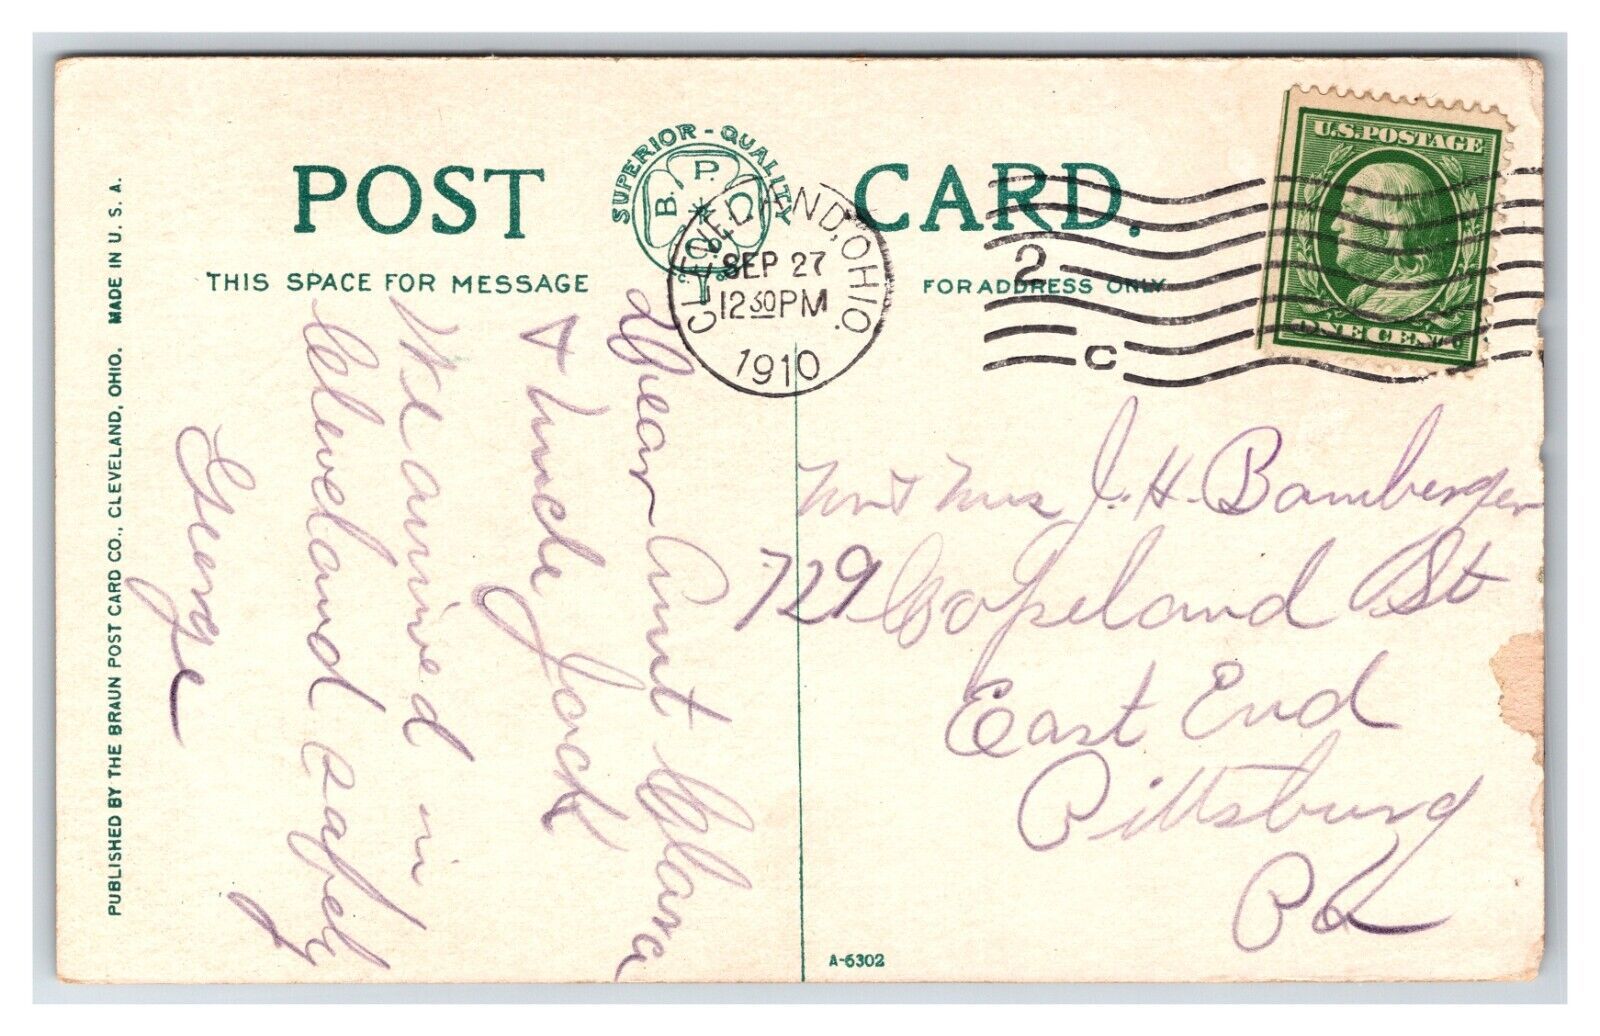 POST CARD.
SUPERIOR-QUALITY
B. P. C.
THIS SPACE FOR MESSAGE
FOR ADDRESS ONLY
CLEVELAND, OHIO.
SEP 27
12 30 PM
1910
2
C
U.S. POSTAGE
ONE CENT
Dear Aunt Clara
+ Uncle Jack
We arrived in
Cleveland safely
George
Mr + Mrs J. H. Bamberger
729 Copeland St
East End
Pittsburg
Pa
PUBLISHED BY THE BRAUN POST CARD CO., CLEVELAND, OHIO. MADE IN U. S. A.
A-6302